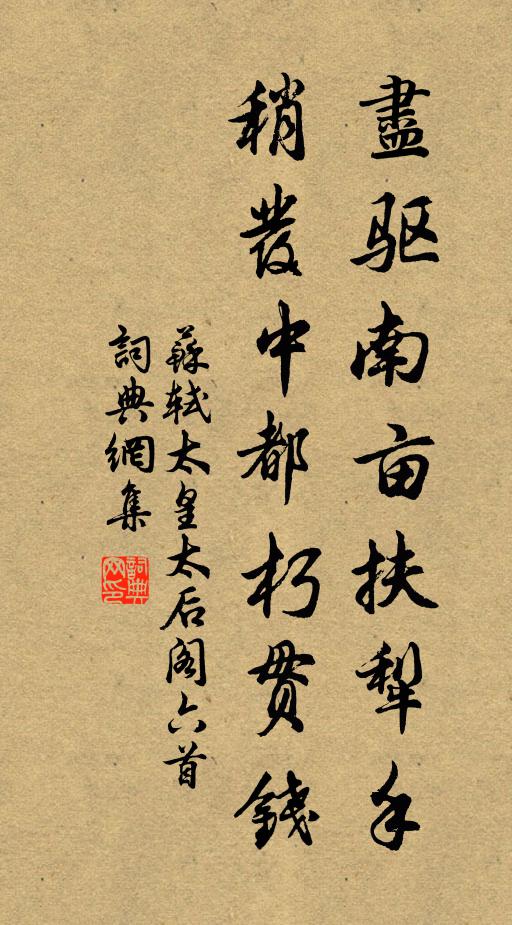 盡驱南亩扶犁手
稍發中都朽贯錢
蘇轼太皇太后阁六首
詞典網集
詞典网印